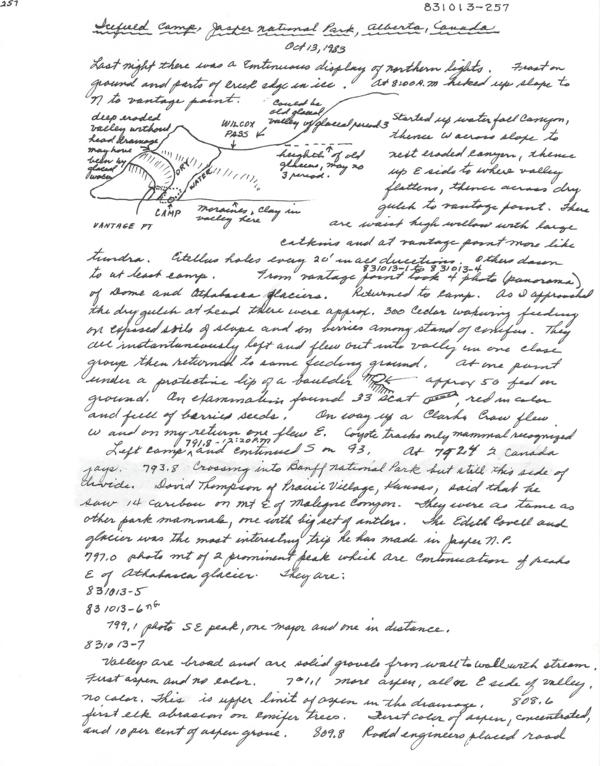 257
831013-257
Icefield Camp, Jasper National Park, Alberta, Canada
Oct 13, 1983
Last night there was a continuous display of northern lights. Frost on
ground and parts of creek edge in ice. At 8:00 A.M. hiked up slope to
N to vantage point.
deep eroded
valley without
head drainage
may have
been by
glacial
water
WILCOX
PASS
Could be
old glacial
valley of glacial period 3
heighth of old
glaciers, may no
3 period.
DRY
WATER
CAMP
VANTAGE PT
moraines, clay in
valley here
Started up waterfall Canyon,
thence W across slope to
next eroded canyon, thence
up E side to where valley
flattens, thence across dry
gulch to vantage point. There
are waist high willow with large
catkins and at vantage point more like
tundra. Citellus holes every 20' in all directions. Others down
to at least camp. From vantage point took 4 photo (panorama)
831013-1 to 831013-4
of Dome and Athabasca glaciers. Returned to camp. As I approached
the dry gulch at head there were approx. 300 Cedar waxwing feeding
on exposed soils of slope and on berries among stand of conifers. They
all instantaneously left and flew out into valley in one close
group then returned to same feeding ground. At one point
under a protective lip of a boulder approx 50 fed on
ground. On examination found 33 scat, red in color
and full of berried seeds. On way up a Clarks Crow flew
W and on my return one flew E. Coyote tracks only mammal recognized
Left camp 791.8 - 12:20 P.M. and continued S on 93. At 792.4 2 Canada
jays. 793.8 Crossing into Banff National Park but still this side of
divide. David Thompson of Prairie Village, Kansas, said that he
saw 14 caribou on mt E of Maligne Canyon. They were as tame as
other park mammals, one with big set of antlers. The Edith Cavell and
glacier was the most interesting trip he has made in Jasper N.P.
797.0 photo mt of 2 prominent peak which are continuation of peaks
E of Athabasca glacier. They are:
831013-5
831013-6
799.1 photo SE peak, one major and one in distance.
831013-7
Valleys are broad and are solid gravels from wall to wall with stream.
First aspen and no color. 701.1 more aspen, all on E side of valley,
no color. This is upper limit of aspen in the drainage. 808.6
first elk abrasion on conifer trees. First color of aspen, concentrated,
and 10 per cent of aspen grove. 809.8 Road engineers placed road